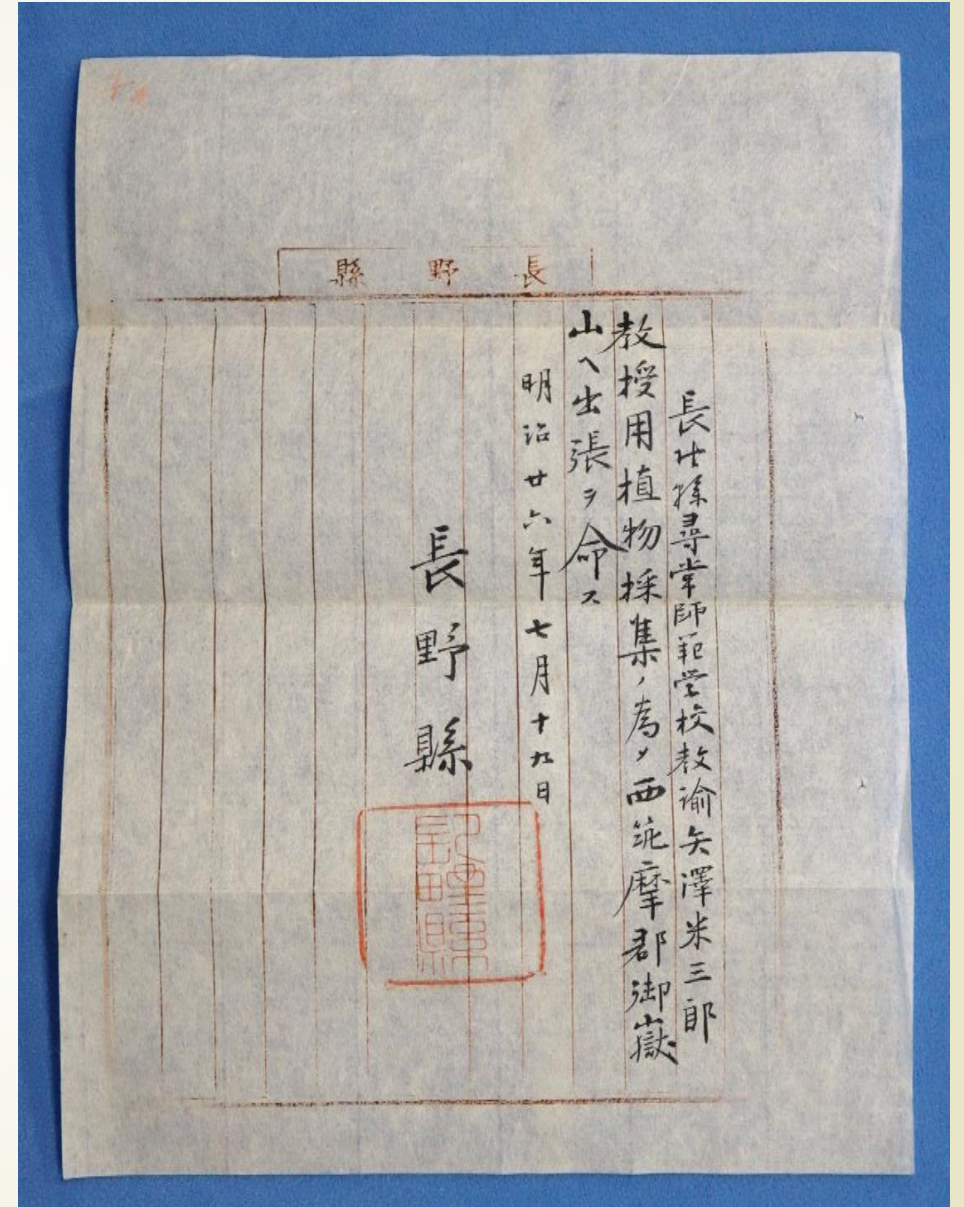 長野縣
長野縣尋常師範学校教諭矢澤米三郎
教授用植物採集ノ為メ西筑摩郡御嶽
山ヘ出張ヲ命ス
明治廿六年七月十九日
長野縣